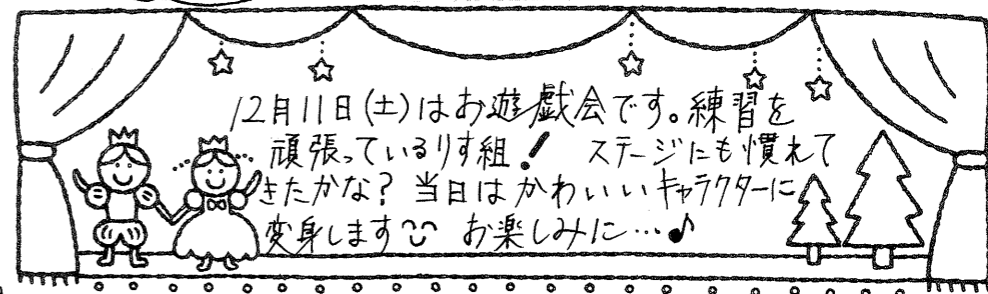 12月11日(土)はお遊戯会です。練習を
頑張っているりす組！ ステージにも慣れて
きたかな？ 当日はかわいいキャラクターに
変身します お楽しみに…♪